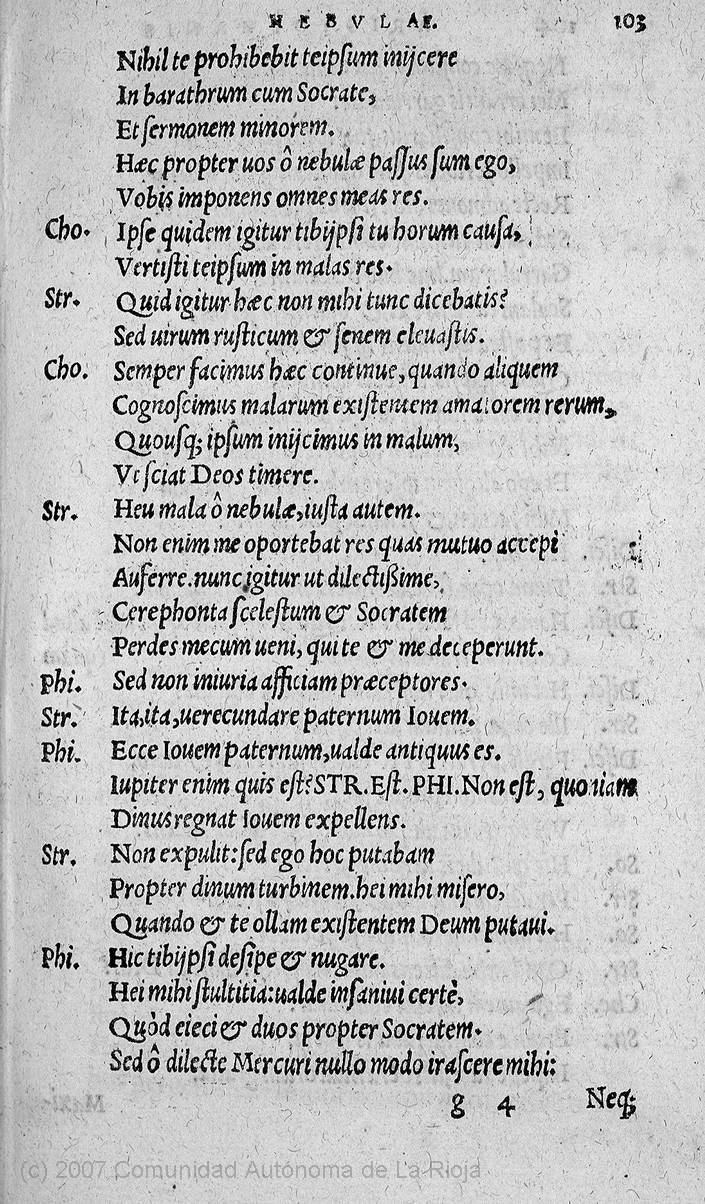 NEBVLAE. 103
Nihil te prohibebit teipſum inijcere
In barathrum cum Socrate,
Et ſermonem minorem.
Hæc propter uos ô nebulæ paſſus ſum ego,
Vobis imponens omnes meas res.
Cho. Ipſe quidem igitur tibijpſi tu horum cauſa,
Vertiſti teipſum in malas res.
Str. Quid igitur hæc non mihi tunc dicebatis?
Sed uirum ruſticum & ſenem eleuaſtis.
Cho. Semper facimus hæc continue, quando aliquem
Cognoſcimus malarum exiſtentem amatorem rerum,
Quouſq; ipſum inijcimus in malum,
Vt ſciat Deos timere.
Str. Heu mala ô nebulæ, iuſta autem.
Non enim me oportebat res quas mutuo accepi
Auferre. nunc igitur ut dilectißime,
Cerephonta ſceleſtum & Socratem
Perdes mecum ueni, qui te & me deceperunt.
Phi. Sed non iniuria afficiam præceptores.
Str. Ita, ita, uerecundare paternum Iouem.
Phi. Ecce Iouem paternum, ualde antiquus es.
Iupiter enim quis eſt? STR. Eſt. PHI. Non eſt, quoniam
Dinus regnat Iouem expellens.
Str. Non expulit: ſed ego hoc putabam
Propter dinum turbinem. hei mihi miſero,
Quando & te ollam exiſtentem Deum putaui.
Phi. Hic tibijpſi deſipe & nugare.
Hei mihi ſtultitia: ualde inſaniui certè,
Quòd eieci & duos propter Socratem.
Sed ô dilecte Mercuri nullo modo iraſcere mihi:
g 4 Neq;
(c) 2007 Comunidad Autónoma de La Rioja